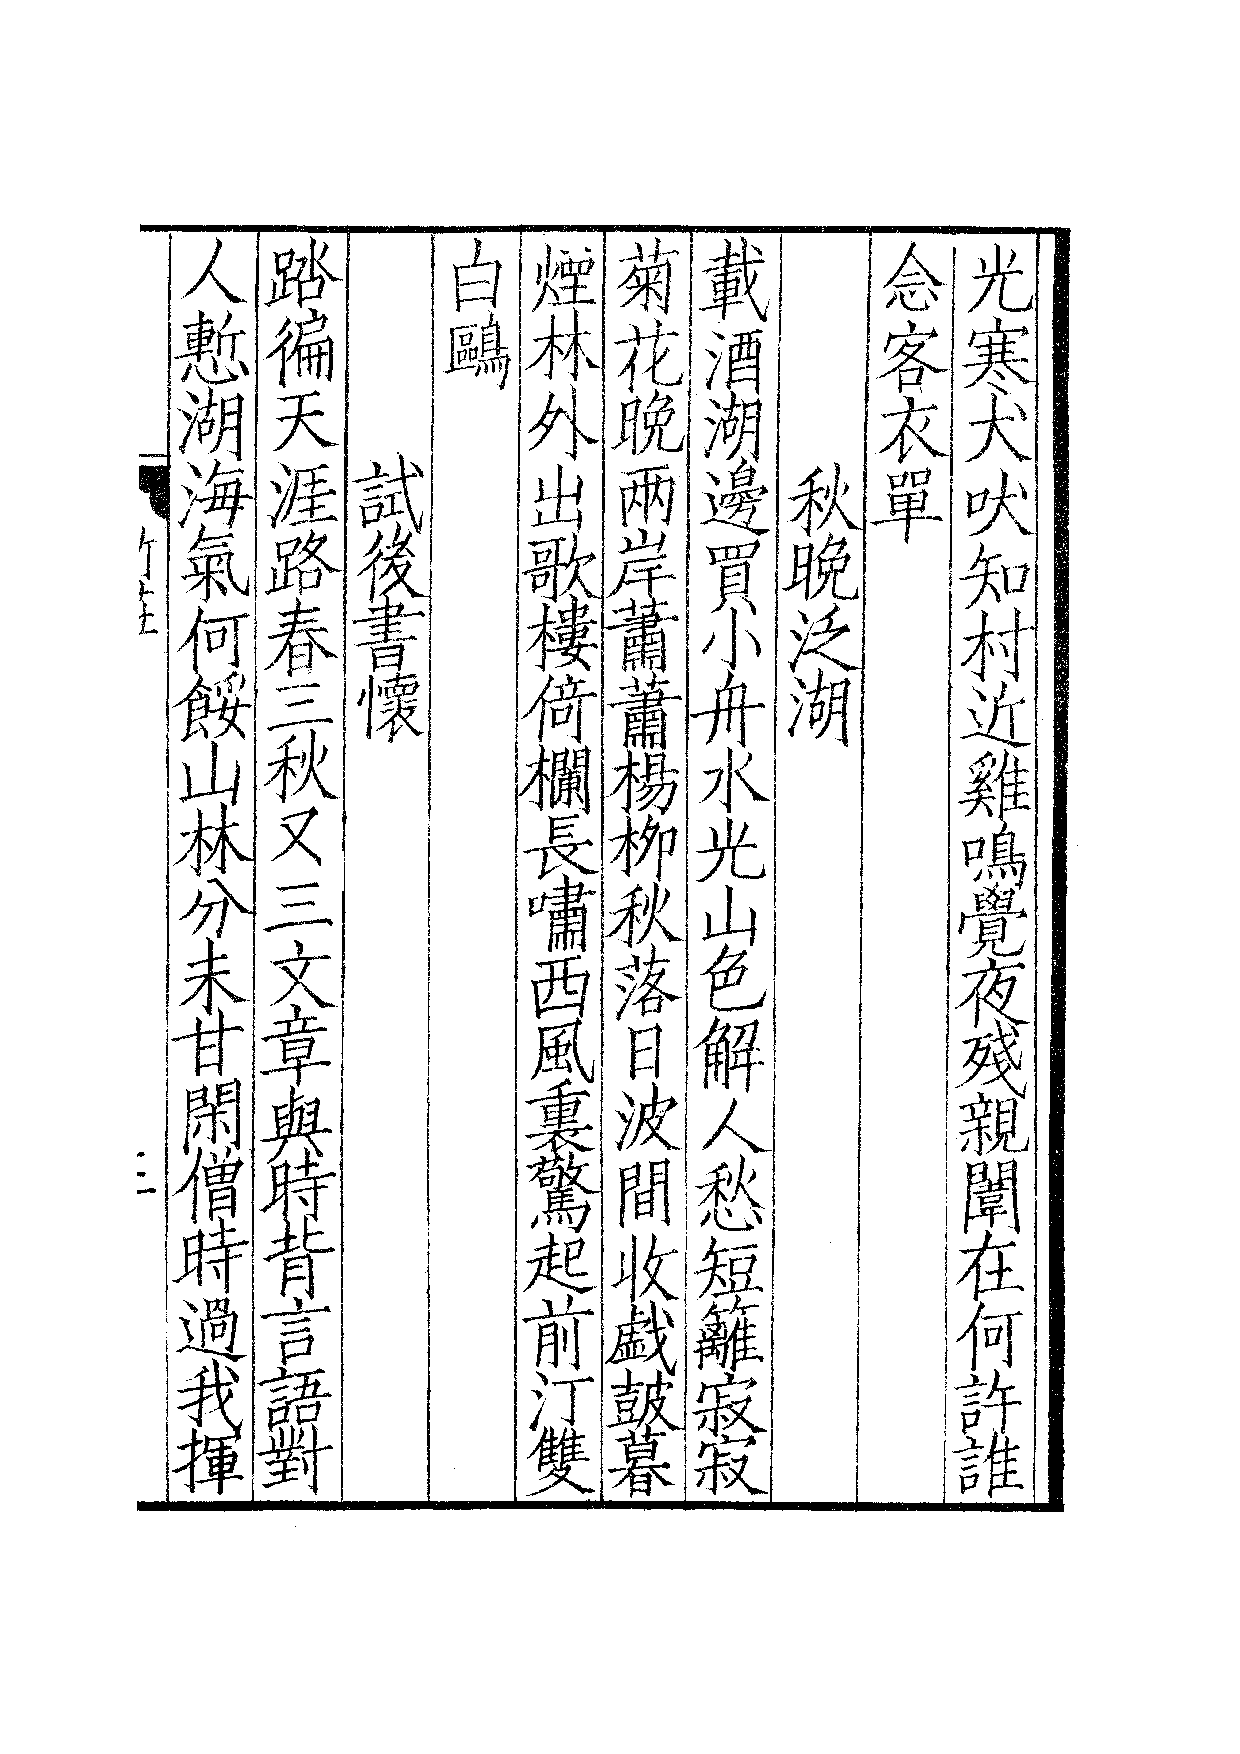 光寒犬吠知村近雞鳴覺夜殘親闈在何許誰
念客衣單
秋晚泛湖
載酒湖邊買小舟水光山色解人愁短籬寂寂
菊花晚兩岸蕭蕭楊柳秋落日波間收戯皷暮
煙林外出歌樓倚欄長嘯西風裏驚起前汀雙
白鷗
試後書懷
踏徧天涯路春三秋又三文章與時背言語對
人慙湖海氣何餒山林分未甘閑僧時過我揮